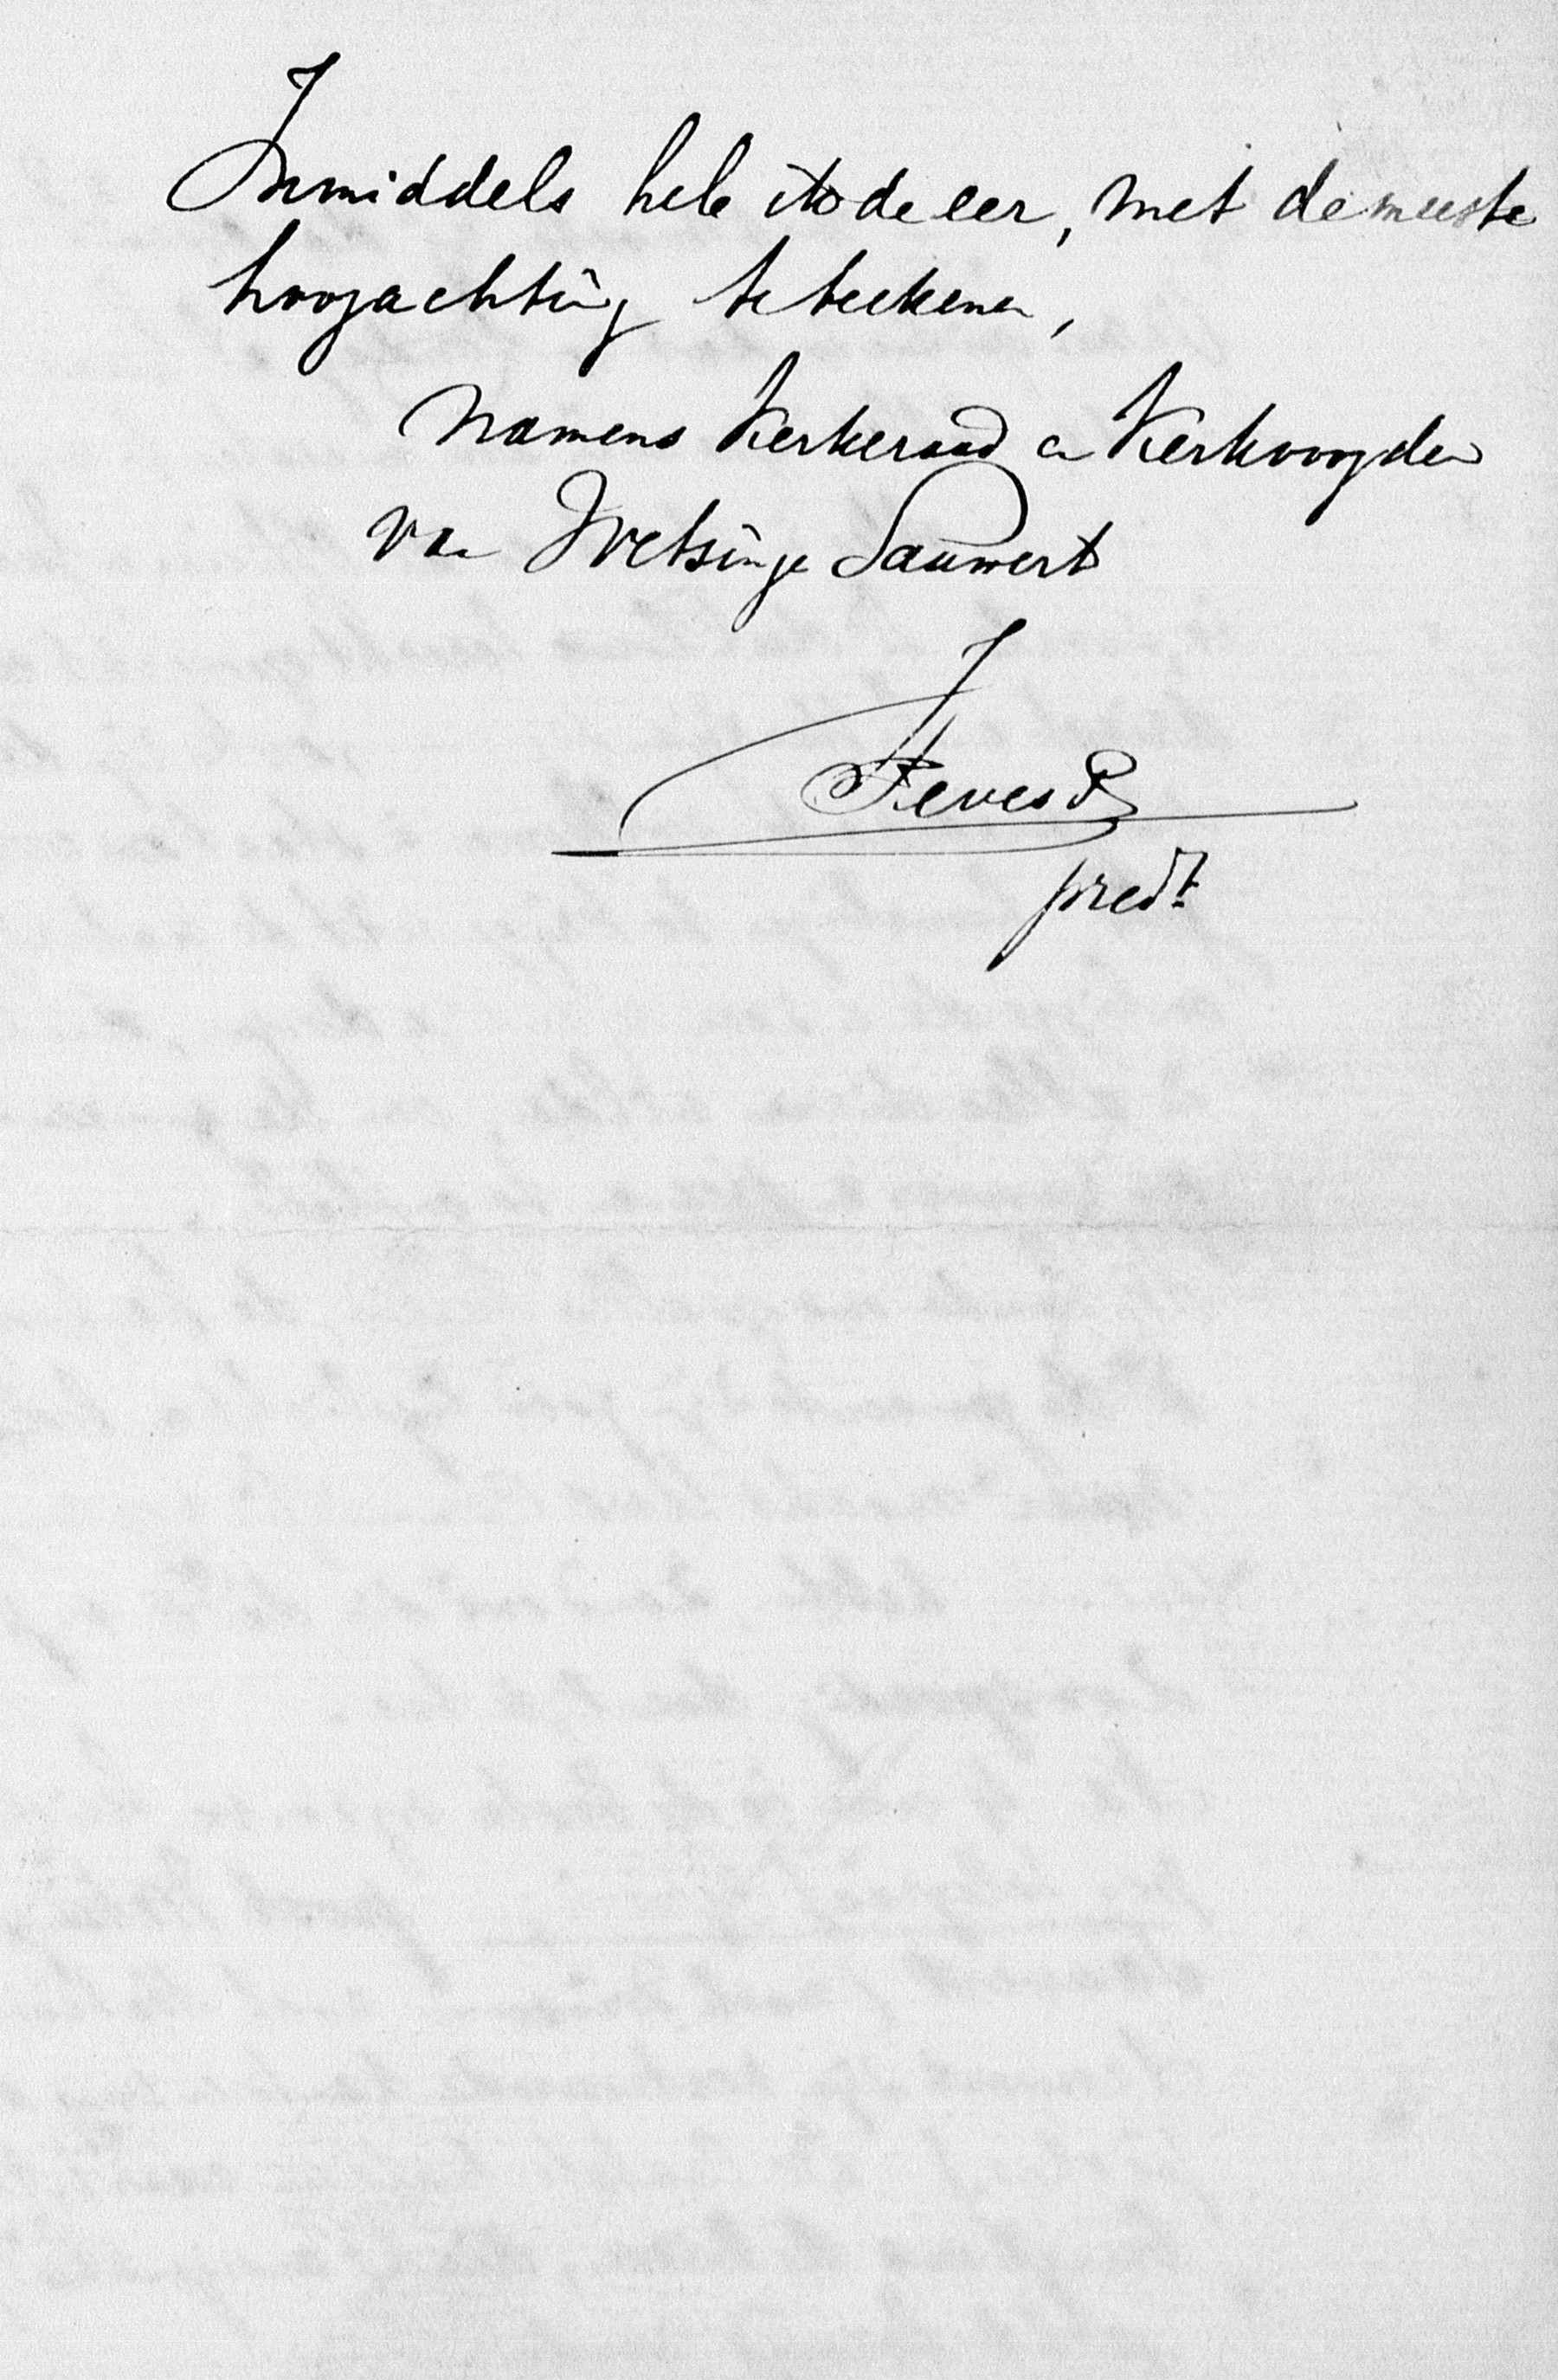 Inmiddels heb ik de eer, met de meeste
hoogachting te teekenen,
Namens Kerkeraad en Kerkvoogden
van Wetsinge Sauwert
pred.t